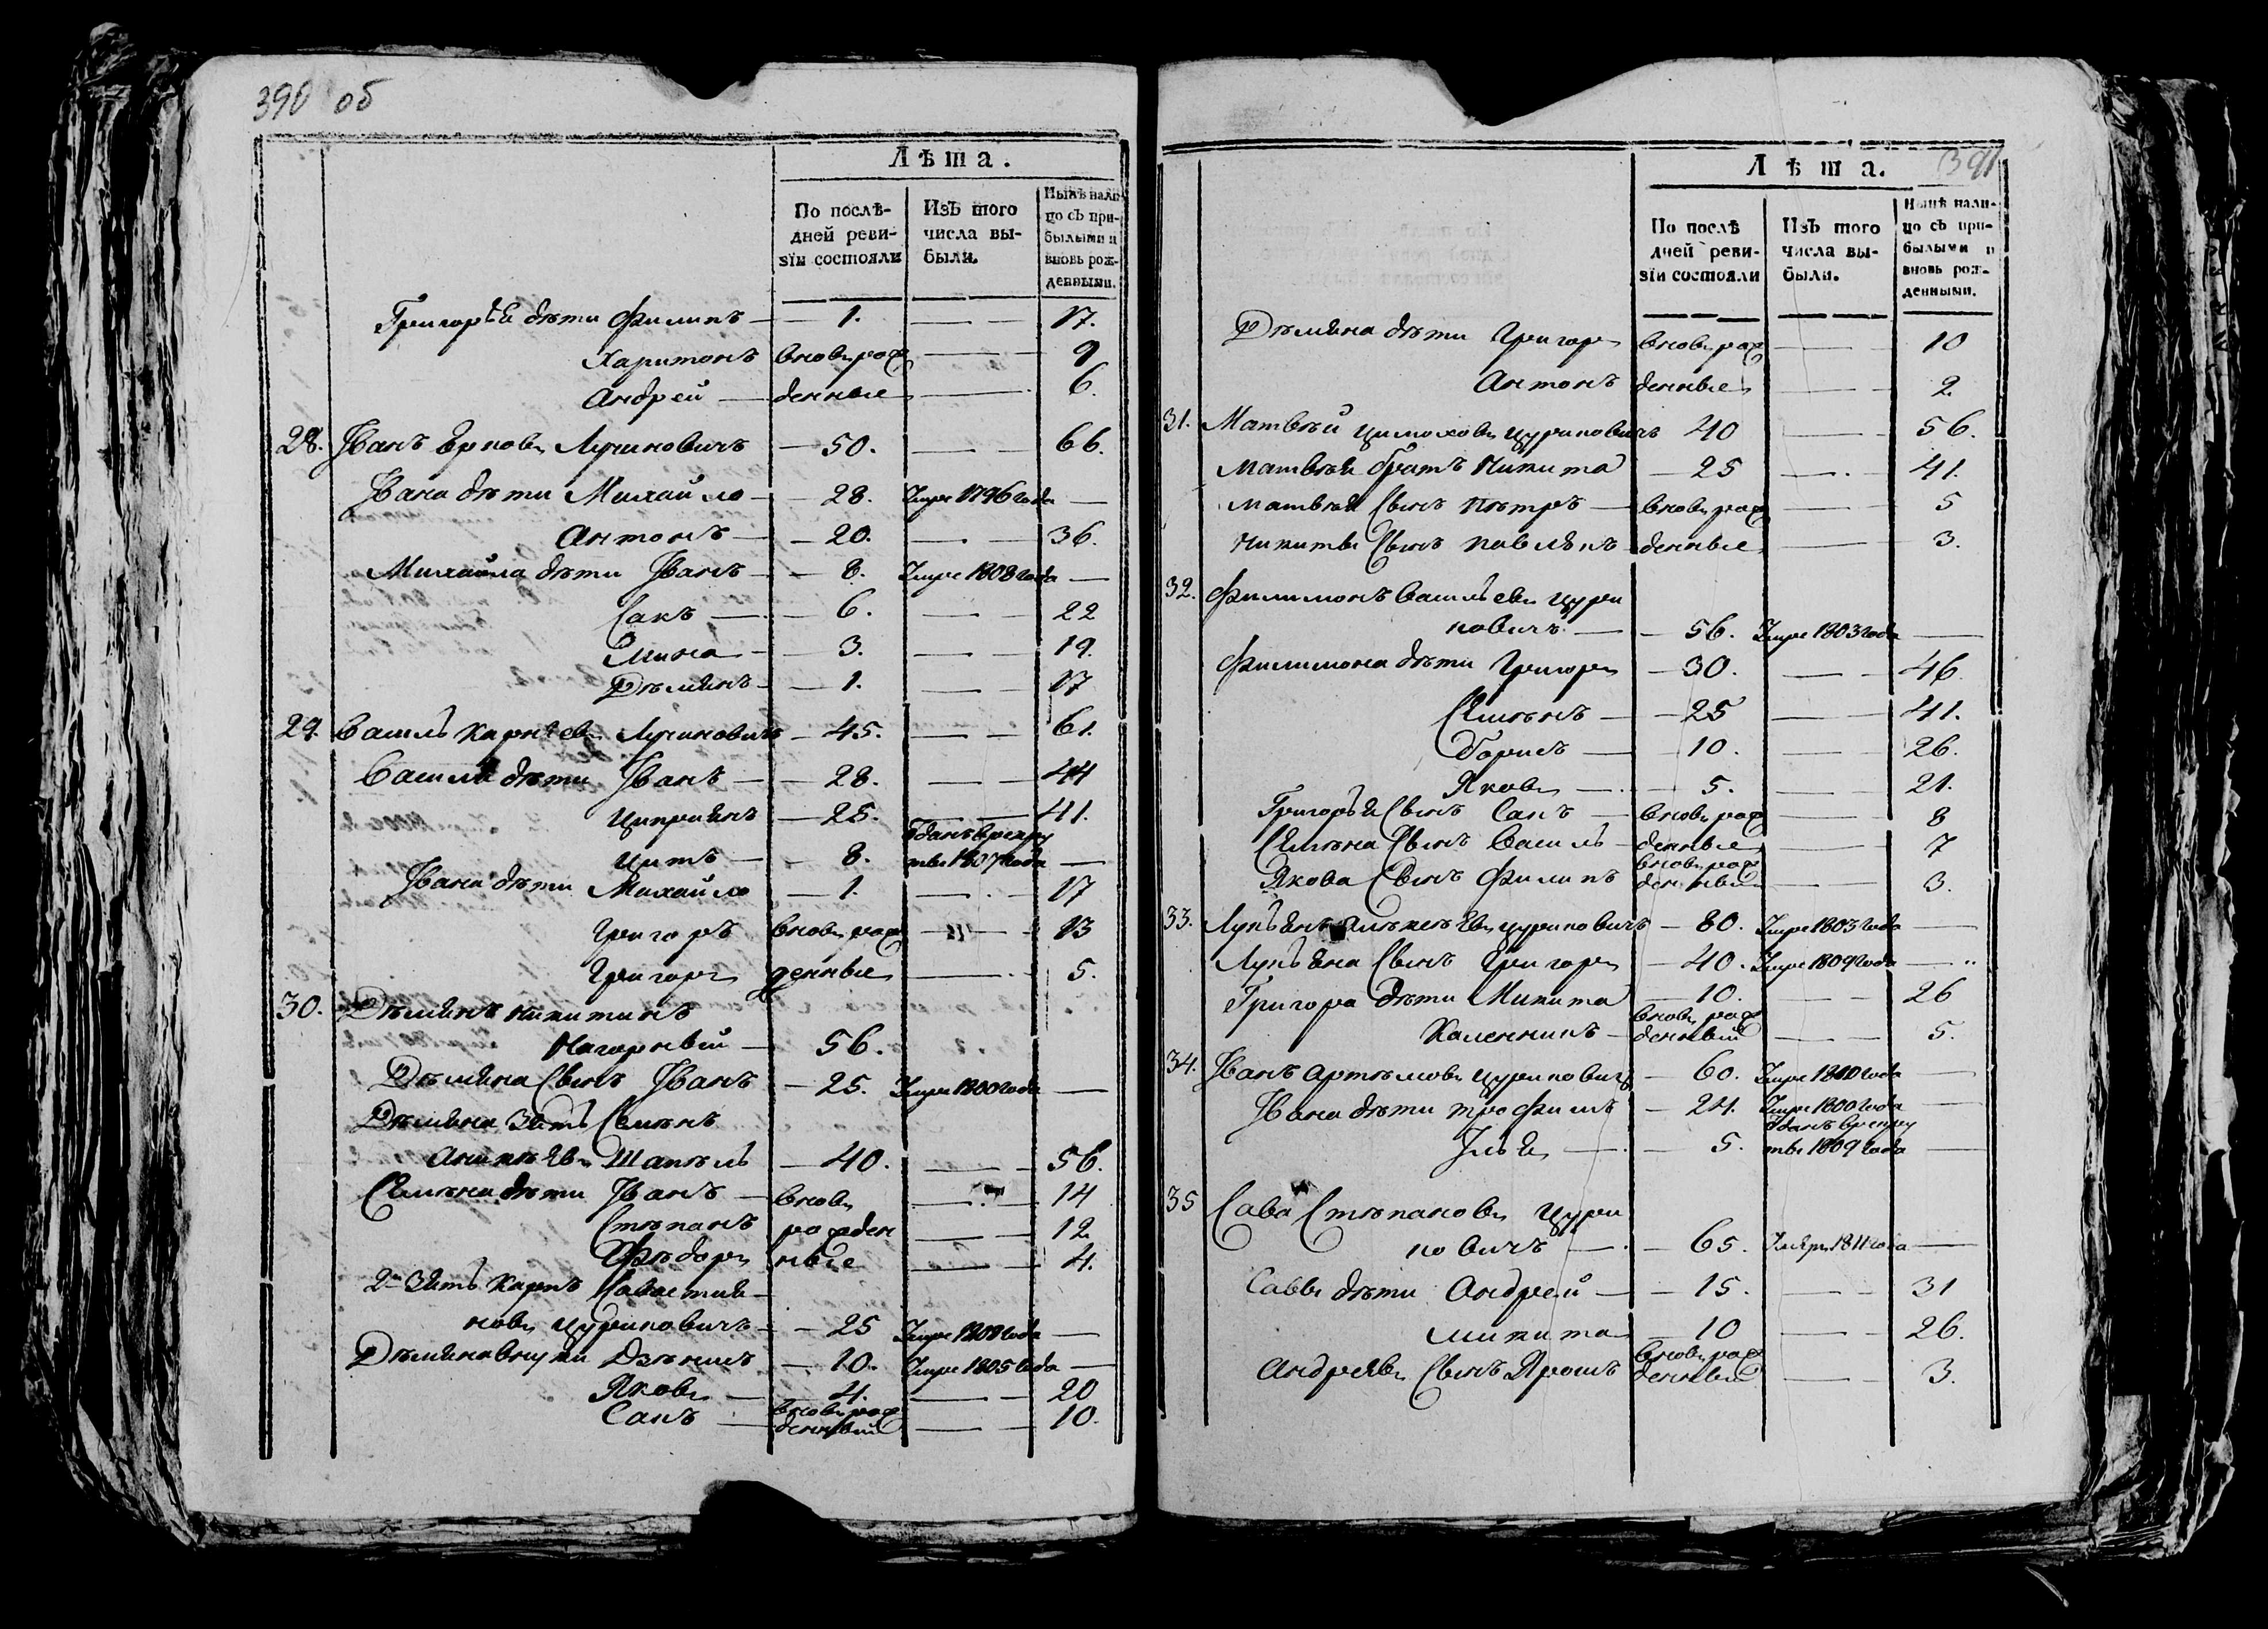 390 об
Лѣта.
По послѣ-
дней реви-
зіи состояли
Изъ того
числа вы-
были.
Нынѣ нали-
цо съ при-
былыми и
вновь рож-
денными.
Григорья дѣти Филипъ — 1. — 17.
Харитонъ вновь рож — 9
Андрей — денные — 6.
28. Іванъ Карповъ Лучиновичъ — 50. — 66.
Івана дѣти Михайло — 28. Умре 1796 года —
Антонъ — 20. — 36.
Михайла дѣти Іванъ — 8. Умре 1808 года —
Сакъ — 6. — 22
Мина — 3. — 19.
Дѣмянъ — 1. — 17
29. Василь Карнѣевъ Лучиновичъ — 45. — 61.
Василя дѣти Іванъ — 28. — 44
Циприянъ — 25. — 41.
Титъ — 8. Зданъ врекру
ты 1807 года —
Івана дѣти Михайло — 1. — 17
Григоръ вновь рож — 13
Григоръ денные — 5.
30. Дѣмянъ Никитинъ
Нагорный — 56.
Дѣмяна Сынъ Іванъ — 25. Умре 1800 года —
Дѣмяна Зять Семѣнъ
Шапѣль — 40. — 56.
Семѣна дѣти Іванъ — вновь — 14
Стѣпанъ рожден — 12
Фѣдоръ ные — 4.
2й Зять Карпъ Савастия-
новъ Цуриковичъ — 25 Умре 1808 года —
Дѣмяна внуки Дзѣнисъ — 10. Умре 1805 года —
Яковъ — 4. — 20
Сакъ — вновь рож
денный — 10.
391
Лѣта.
По послѣ
дней реви-
зіи состояли
Изъ того
числа вы-
были.
Нынѣ нали-
цо съ при-
былыми и
вновь рож-
денными.
Дѣмяна дѣти Григоръ вновь рож — 10
Антонъ денные — 2.
31. Матвѣй Цимоховъ Цуриковичъ 40 — 56.
Матвѣя братъ Никита — 25 — 41.
Матвѣя Сынъ Пѣтръ — вновь рож — 5
Никиты Сынъ Павлюкъ денные — 3.
32. Филимонъ Васильевъ Цури
ковичъ — 56. Умре 1803 года —
Филимона дѣти Григоръ — 30. — 46.
Семѣнъ — 25 — 41.
Борисъ — 10. — 26.
Яковъ — 5. — 21.
Григорья Сынъ Сакъ — вновь рож — 8
Семѣна Сынъ Василь — денные — 7
Якова Сынъ Филипъ вновь рож
денный — 3.
33. Лукьянъ Алѣксѣевъ Цуриковичъ — 80. Умре 1803 года —
Лукьяна Сынъ Григоръ — 40. Умре 1809 года —
Григора дѣти Микита — 10. — 26
Каленникъ — вновь рож
денный — 5.
34. Іванъ Артѣмовъ Цуриковичъ — 60. Умре 1810 года —
Івана дѣти Трофимъ — 24. Умре 1800 года —
Илья — 5. Зданъ врекру
ты 1809 года —
35 Сава Стѣпановъ Цури
ковичъ — 65. Умеръ 1811 года —
Саввы дѣти Андрей — 15. — 31
Микита — 10 — 26.
Андреявъ Сынъ Ярошъ вновь рож
денный — 3.